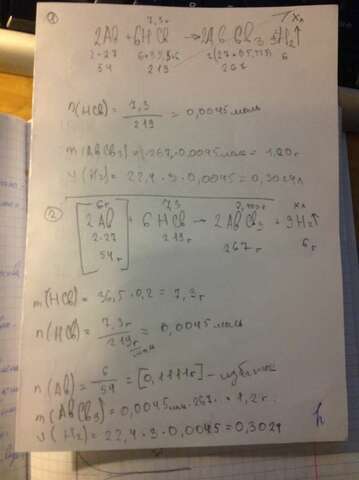 ①
7,3г
Xл
2Al + 6HCl → 2AlCl₃ 3H₂↑
2·27
2(27+35,5·3)
6
54
219
267
n(HCl) = 7,3/219 = 0,0045 моль
m(AlCl₃) = 267·0,0045 моль = 1,20г
V(H₂) = 22,4·3·0,0045 = 0,3024л
②
6г
7,3
Xл
2Al + 6HCl → 2AlCl₃ + 3H₂↑
2·27
219г
267г
6г
54г
m(HCl) = 36,5·0,2 = 7,3г
n(HCl) = 7,3г/219 г/моль = 0,0045 моль
n(Al) = 6/54 = [0,1111г] – избыток
m(AlCl₃) = 0,0045 моль·267 = 1,2г.
V(H₂) = 22,4·3·0,0045 = 0,3024